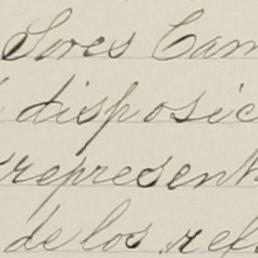 Sores Cam
disposic
represent
de los ref